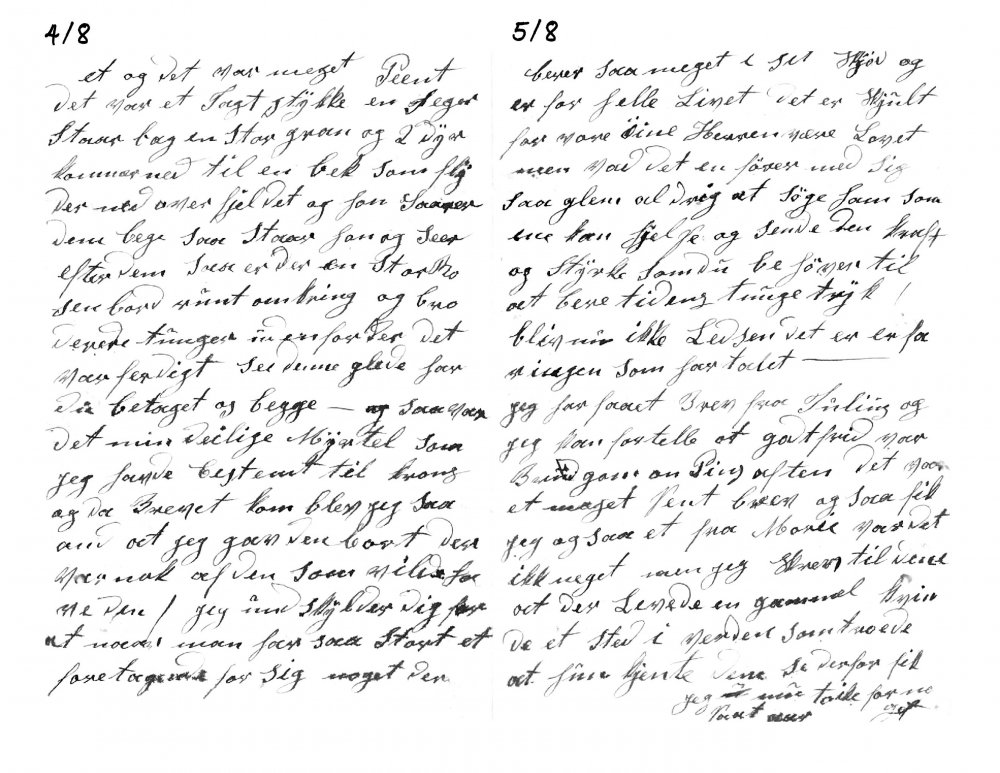 4/8
et og det var meget Peent
det var et Jagt stykke en Jeger
Staar bag en Stor gran og 2 dyr
kommer ned til en bek som flÿ
der ned over fjeldet og han Saarer
dem bege saa Staar han og Seer
efter dem Saa er der en Stor Ro
sen bord runt omkring og bro
derede tunger udenfor der det
var ferdigt See denne glede har
du betaget os begge — og saa var
det min deilige Myrtel som
jeg havde bestemt til krons
og da Brevet kom blev jeg saa
and at jeg gav den bort der
var nok af den som vilde ha
ve den / jeg und skylder dig for
at naar man har saa Stort et
foretagende for sig noget der
5/8
berer saa meget i sit Skjød og
er for helle Livet det er Skjult
for vore øine Herren være Lovet
men vad det en fører med Sig
saa glem aldrig at Søge ham som
ene kan hjelpe og sende den kraft
og Styrke som du behøver til
at bere tidens tunge tryk !
bliv nu ikke Ledsen det er erfa
ringen som har talet —
jeg har faaet Brev fra Juling og
jeg kan fortelle at gotfrid var
Brudgom on Pins aften det var
et meget Pent brev og saa fik
jeg ogsaa et fra Marie var det
ikke meget men jeg Skrev til dem
at der Levede en gammel kvin
de et Sted i verden som troede
at hun kjente dem Se derfor fik
jeg nu takke for no
get